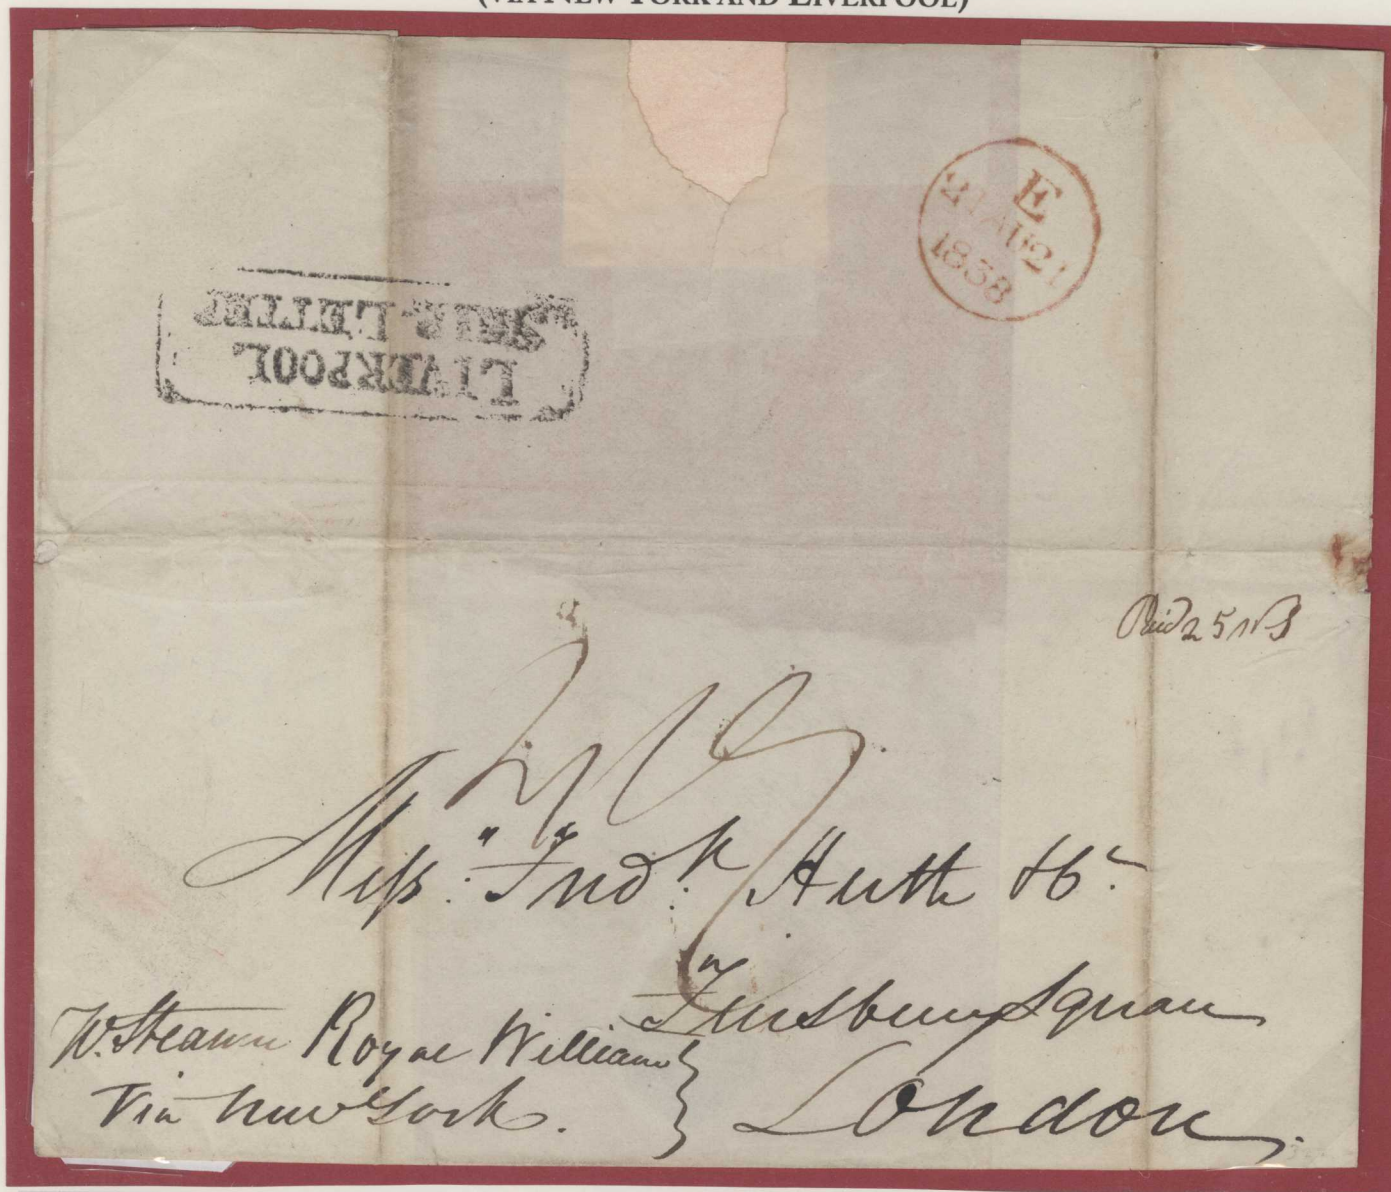 (VIA NEW YORK AND LIVERPOOL)
E
21 AU 21
1838
LIVERPOOL
SHIP LETTER
Paid 25
Mess.rs Fred.k Huth & Co.
Finsbury Square
London
Steamer Royal William
Via New York.